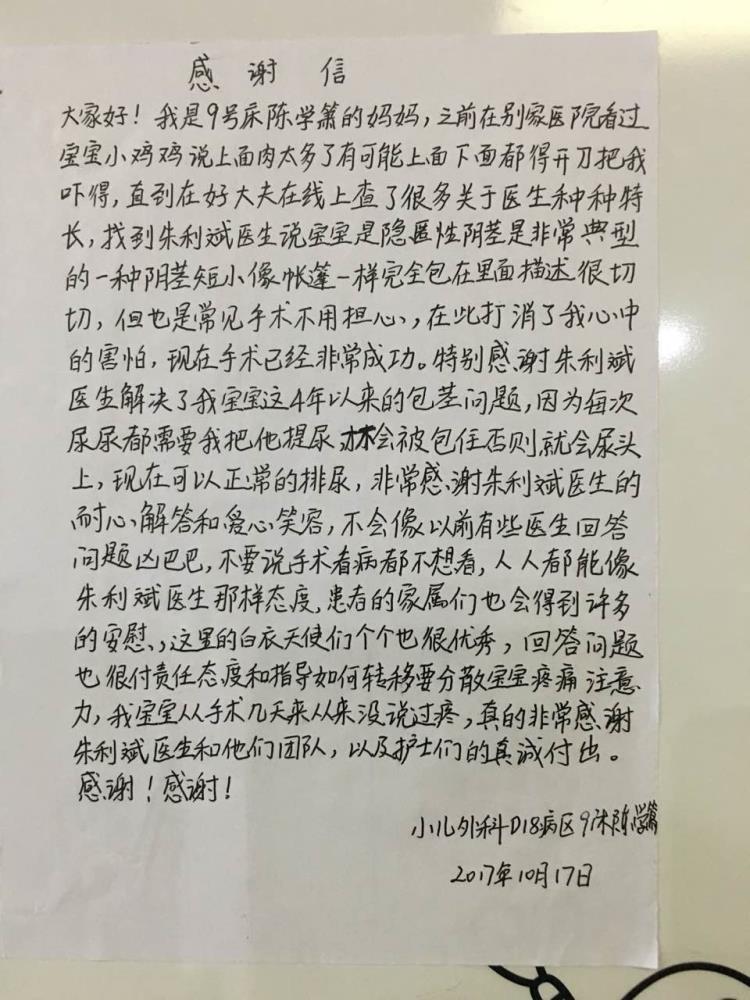 感谢信
大家好！我是9号床陈学箫的妈妈，之前在别家医院看过
宝宝小鸡鸡说上面肉太多了有可能上面下面都得开刀把我
吓得，直到在好大夫在线上查了很多关于医生种种特
长，找到朱利斌医生说宝宝是隐匿性阴茎是非常典型
的一种阴茎短小像帐篷一样完全包在里面描述很切
切，但也是常见手术不用担心，在此打消了我心中
的害怕，现在手术已经非常成功。特别感谢朱利斌
医生解决了我宝宝这4年以来的包茎问题，因为每次
尿尿都需要我把他提尿才不会被包住否则就会尿头
上，现在可以正常的排尿，非常感谢朱利斌医生的
耐心解答和爱心笑容，不会像以前有些医生回答
问题凶巴巴，不要说手术看病都不想看，人人都能像
朱利斌医生那样态度，患者的家属们也会得到许多
的安慰，这里的白衣天使们个个也很优秀，回答问题
也很付责任态度和指导如何转移要分散宝宝疼痛注意
力，我宝宝从手术几天来从来没说过疼，真的非常感谢
朱利斌医生和他们团队，以及护士们的真诚付出。
感谢！感谢！
小儿外科D18病区9床陈学箫
2017年10月17日